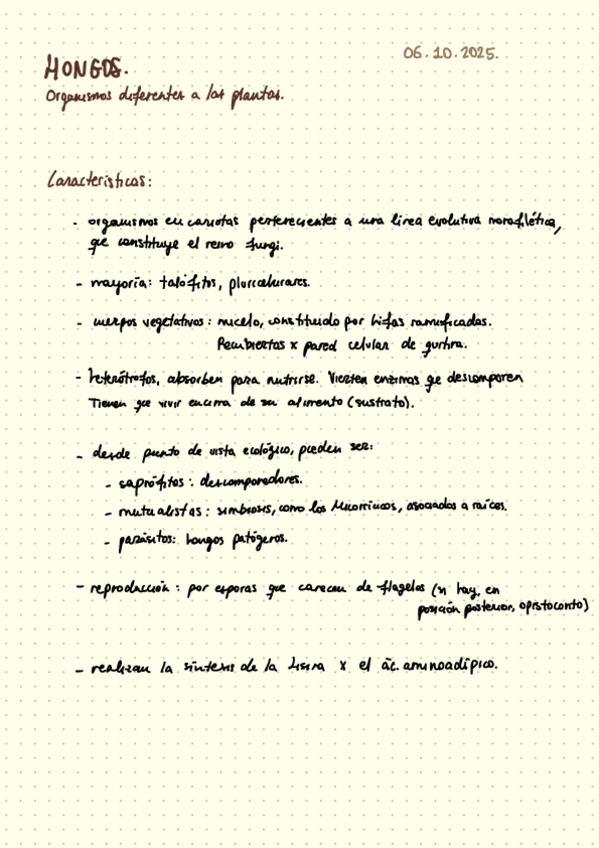 06.10.2025.
HONGOS.
Organismos diferentes a las plantas.
Características:
- organismos eucariotas pertenecientes a una línea evolutiva monofilética,
que constituye el reino fungi.
- mayoría: talófitos, pluricelulares.
- cuerpos vegetativos: micelo, constituido por hifas ramificadas.
Recubiertas x pared celular de quitina.
- heterótrofos, absorben para nutrirse. Vierten enzimas qe descomponen
Tienen qe vivir encima de su alimento (sustrato).
- desde punto de vista ecológico, pueden ser:
- saprófitos: descomponedores.
- mutualistas: simbiosis, como los Micorricicos, asociados a raíces.
- parásitos: hongos patógenos.
- reproducción: por esporas que carecen de flagelos (si hay, en
posición posterior, opistoconto)
- realizan la síntesis de la lisina x el ác. aminoadípico.